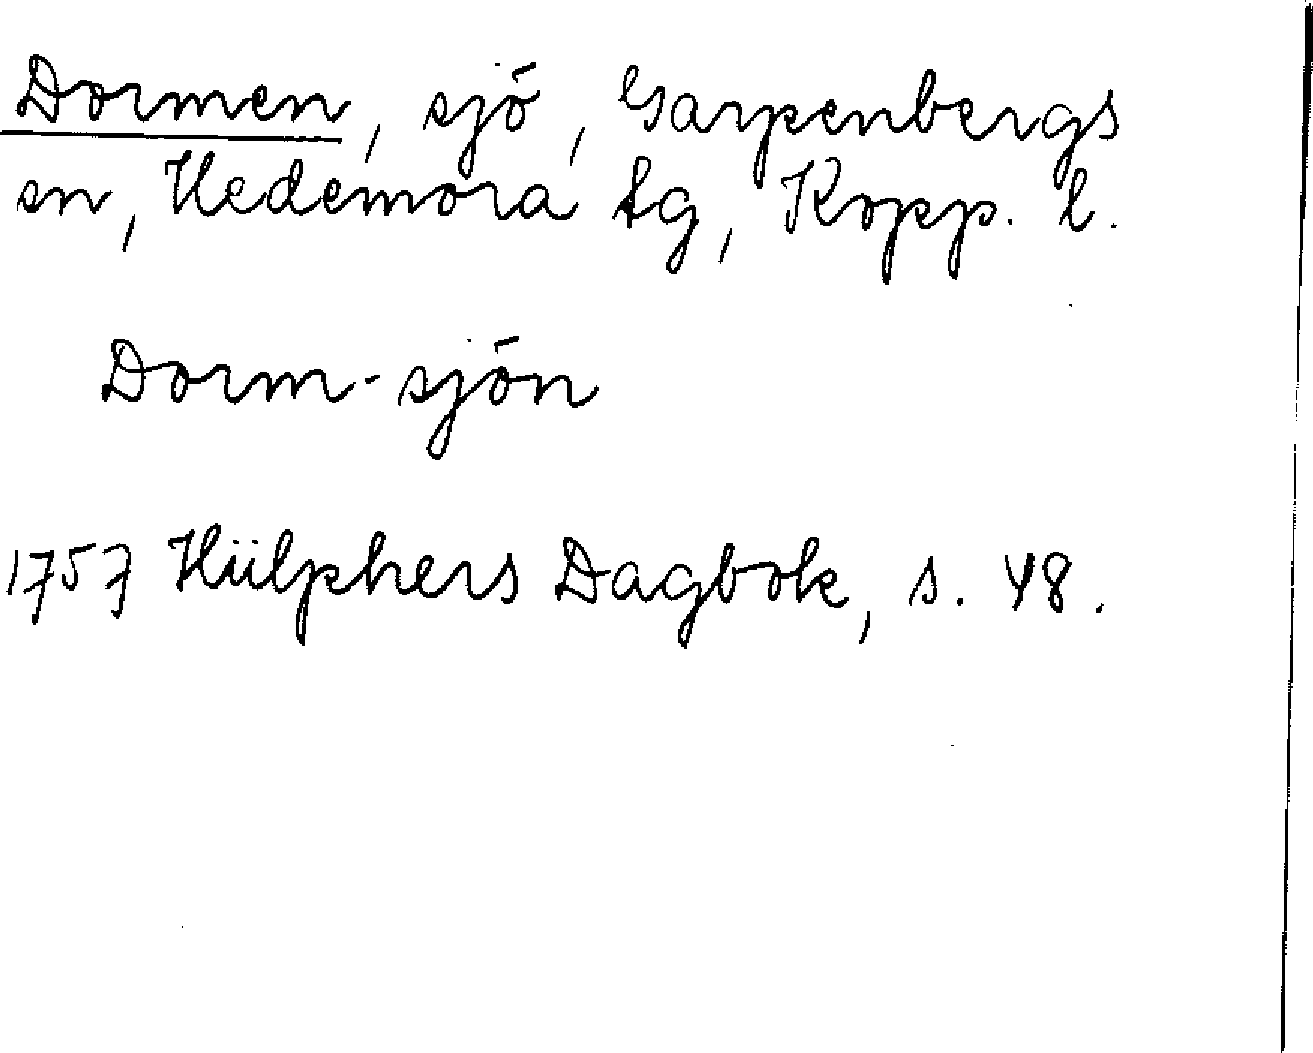 Dormen, sjö, Garpenbergs
sn, Hedemora tg, Kopp. l.
Dorm-sjön
1757 Hülphers Dagbok, s. 48.